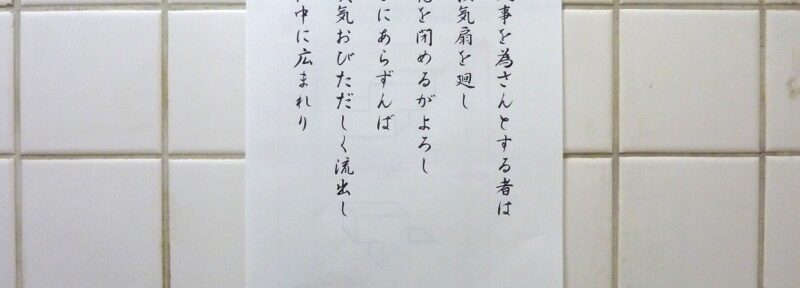 事を為さんとする者は
気扇を廻し
を閉めるがよろし
にあらずんば
気おびただしく流出し
中に広まれり